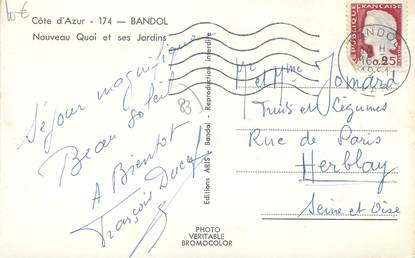 10€
Côte d'Azur - 174 — BANDOL
Nouveau Quai et ses Jardins
Séjour magnifique
Beau soleil
A Bientot
François
83
Editions ARIS - Bandol - Reproduction interdite
PHOTO
VERITABLE
BROMOCOLOR
REPUBLIQUE FRANÇAISE
0,25F
BANDOL
Mr et Mme Jomard
Fruits en Légumes
Rue de Paris
Herblay
Seine et Oise